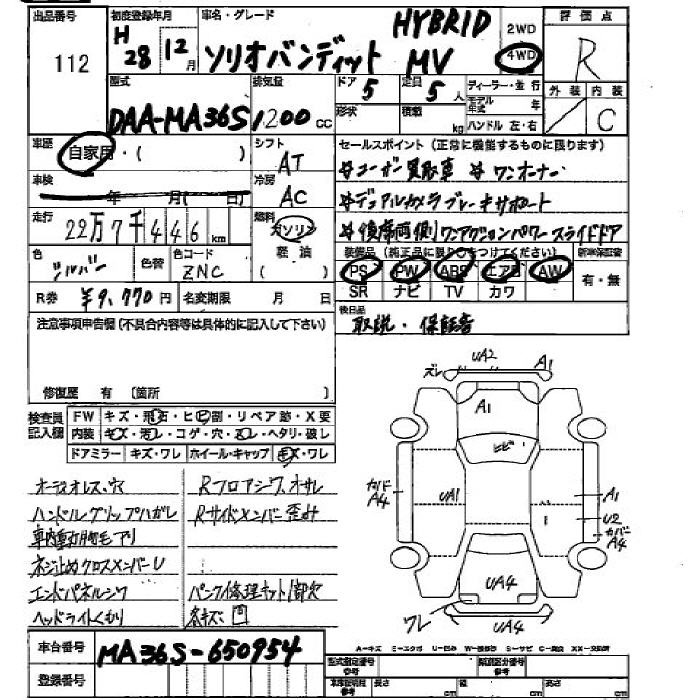 出品番号 初度登録年月 車名・グレード HYBRID 2WD 評価点
112 H28 12月 ソリオバンディット MV 4WD R
型式 排気量 ドア 5 定員 5人 ディーラー・並行 外装 内装
DAA-MA36S 1200cc 形状 積載 kg モデル年式 年 C
ハンドル 左・右
車歴 自家用・( ) シフト AT セールスポイント (正常に機能するものに限ります)
#ユーザー買取車 #ワンオーナー
車検 年 月( 日) 冷房 AC #デュアルカメラブレーキサポート
走行 22万7千446km 燃料 ガソリン #後席両側ワンアクションパワースライドドア
軽油 ( )
色 シルバー 色替 色コード ZNC 装備品 (純正品に限り○をつけてください) 新車保証書
PS PW ABS エアB AW 有・無
SR ナビ TV カワ
R券 ¥9,770円 名変期限 月 日 後日品
取説・保証書
注意事項申告欄 (不具合内容等は具体的に記入して下さい)
修復歴 有 〔箇所 〕
検査員記入欄 FW キズ・飛石・ヒビ割・リペア跡・X要
内装 キズ・汚レ・コゲ・穴・スレ・ヘタリ・破レ
ドアミラー キズ・ワレ ホイール・キャップ キズ・ワレ
オーディオレス、穴 Rフロアシワ、オサレ
ハンドルグリップハガレ Rサイドメンバー歪み
車内動物毛アリ
ネジ止めクロスメンバーU
エンドパネルシワ パンク修理キット1部欠
ヘッドライトくもり
ズレ UA2 A1
A1
ヒビ
カバード A4 UA1 A1
U2
カバー A4
UA4
ワレ UA4
車台番号 MA36S-650954
登録番号
型式指定番号 参考 類別区分番号 参考
長さ cm 幅 cm 高さ cm